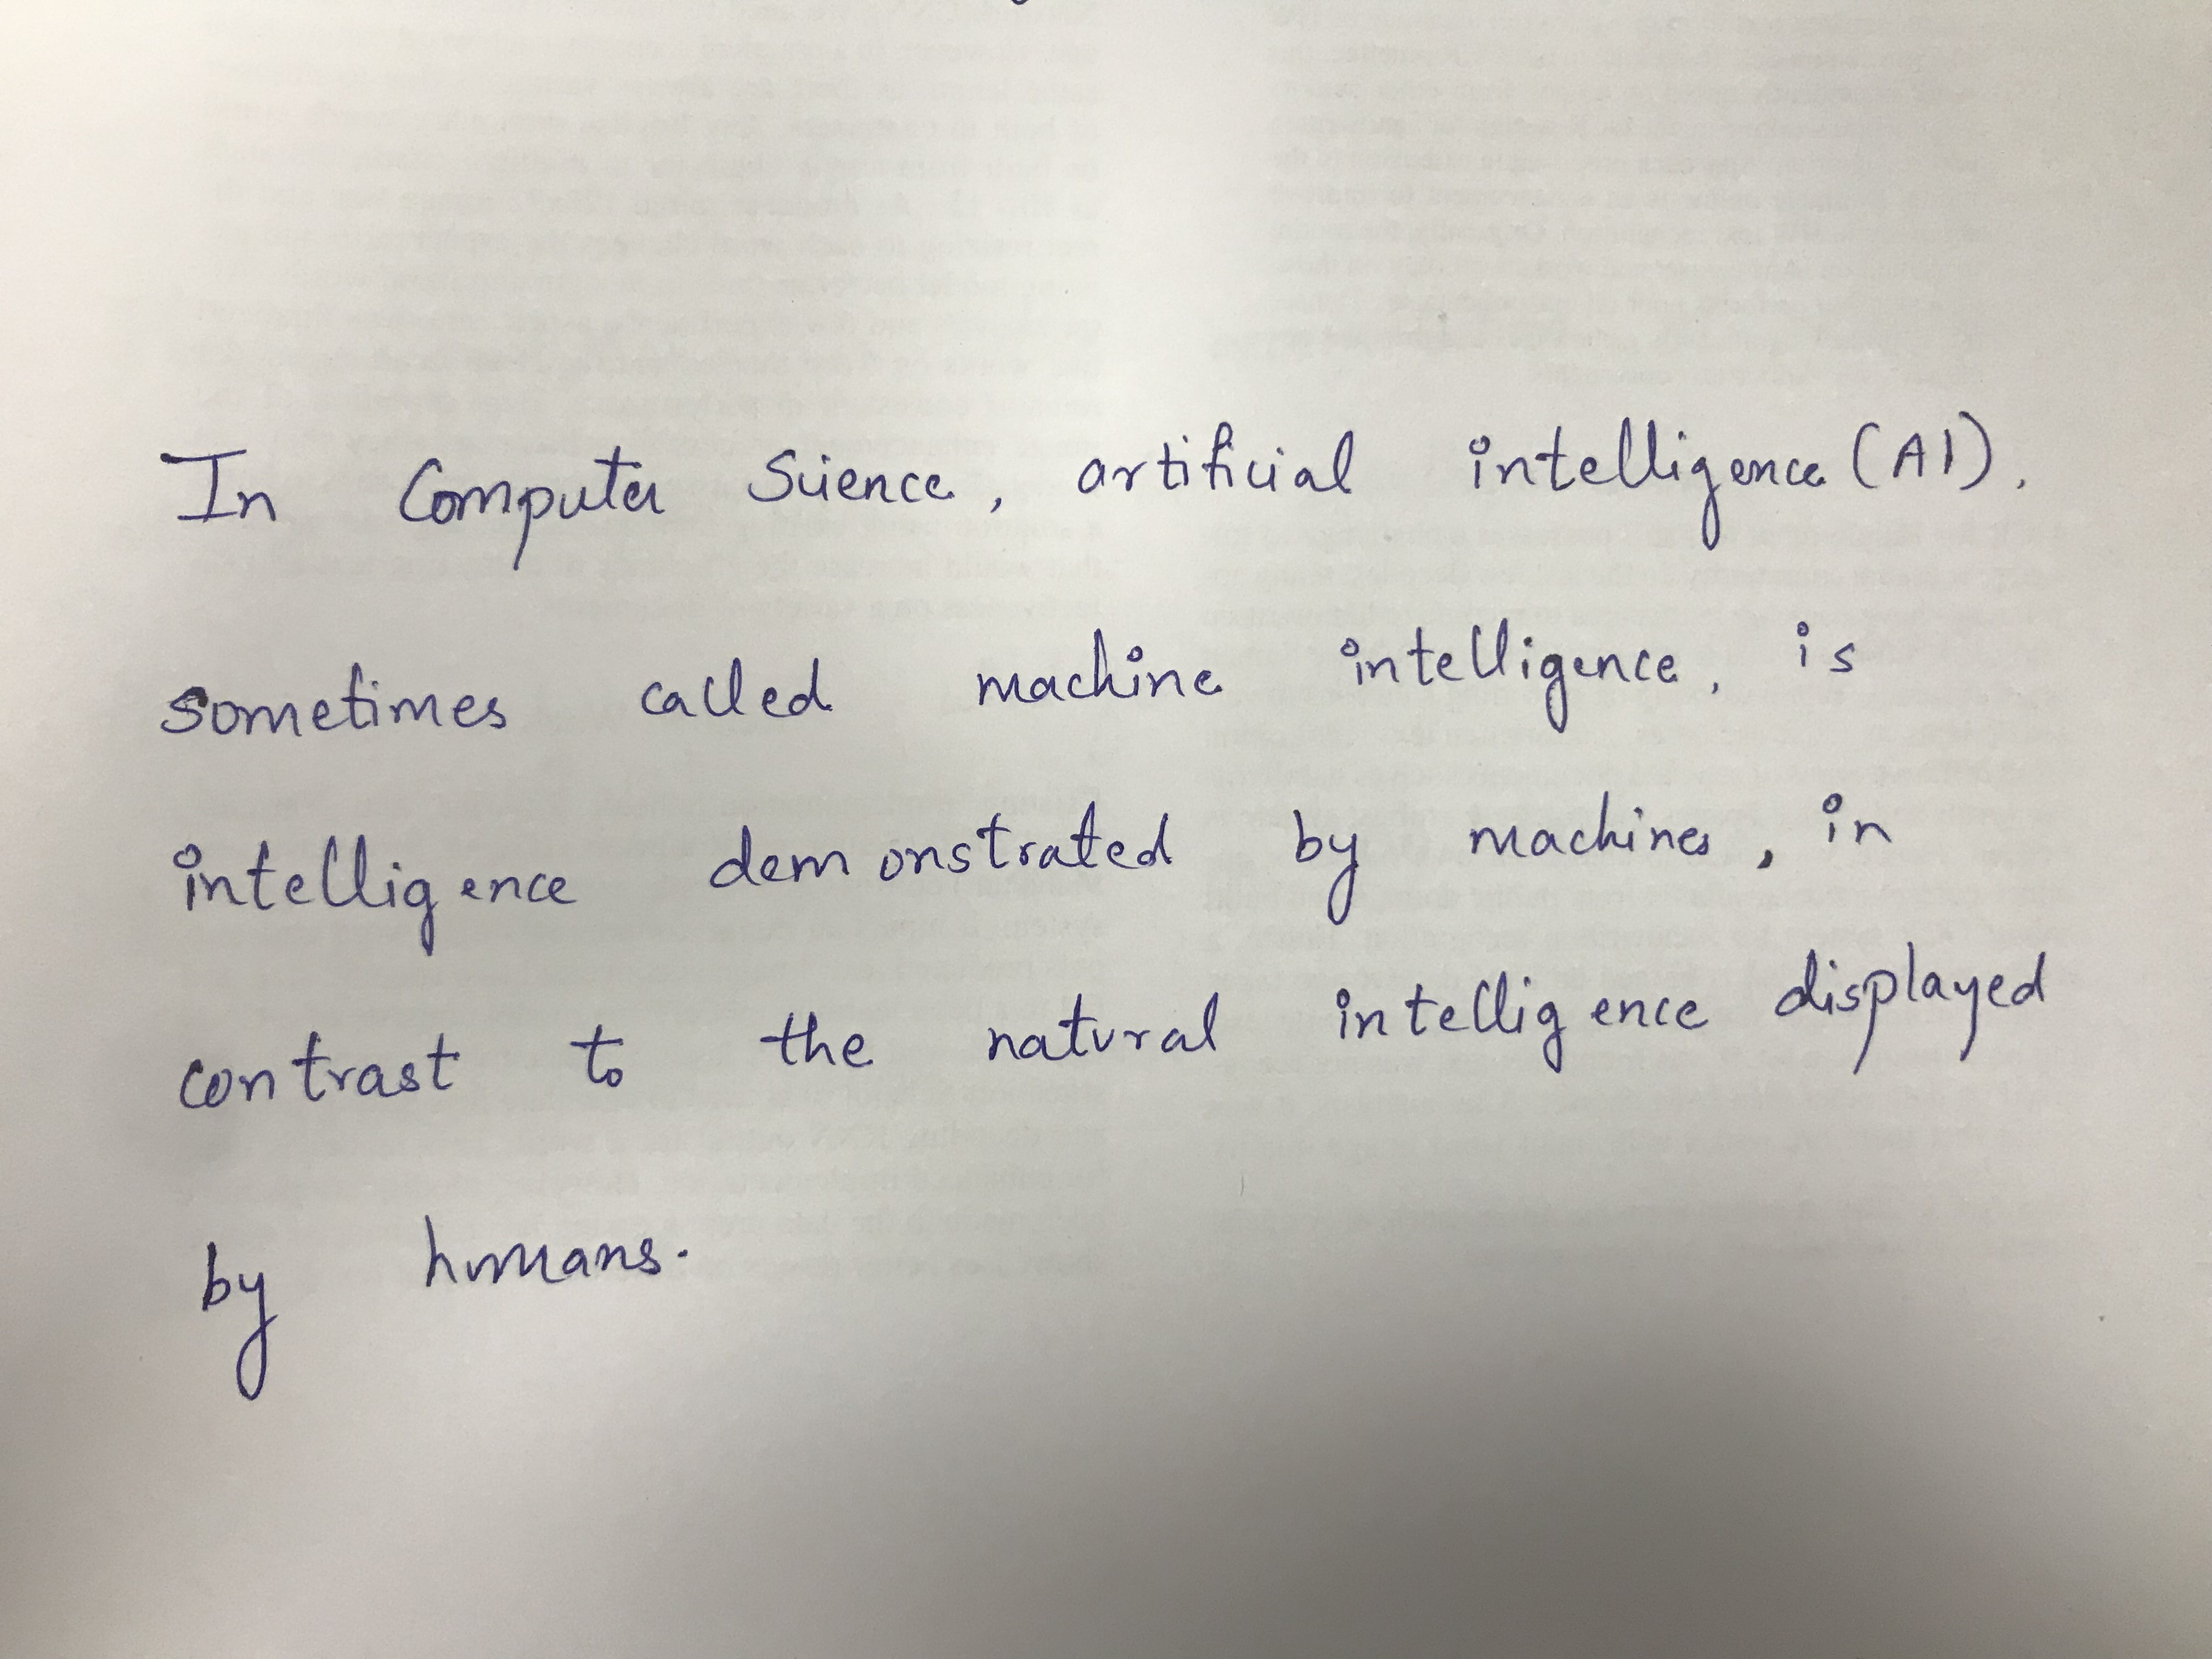 In Computer Science, artificial intelligence (AI),
sometimes called machine intelligence, is
intelligence demonstrated by machines, in
contrast to the natural intelligence displayed
by humans.